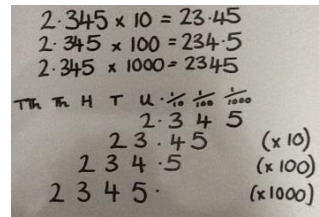 2·345 x 10 = 23·45
2·345 x 100 = 234·5
2·345 x 1000 = 2345
TTh Th H T U · 1/10 1/100 1/1000
2·3 4 5
2 3 · 4 5 (x 10)
2 3 4 · 5 (x 100)
2 3 4 5 · (x 1000)